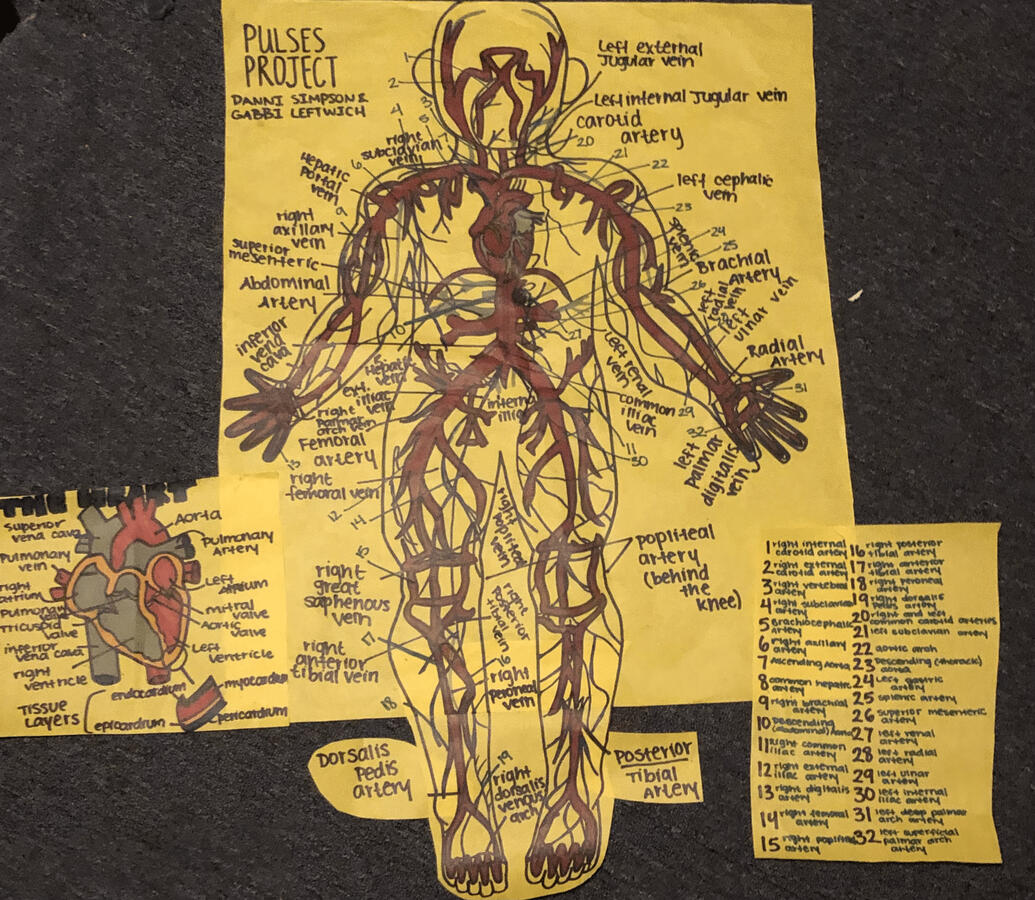 PULSES
PROJECT
DANNI SIMPSON &
GABBI LEFTWICH
1
2
4
3
5
right
subclavian
vein
6
Hepatic
Portal
vein
9
right
axillary
vein
superior
mesenteric
Abdominal
Artery
10
inferior
vena
cava
Hepatic
vein
ext.
iliac
vein
right
Palmar
arch vein
Femoral
artery
13
right
femoral vein
12
14
15
right
great
saphenous
vein
17
right
anterior
tibial vein
18
Left external
Jugular vein
Left internal Jugular vein
carotid
artery
20
21
22
left cephalic
vein
23
24
25
splenic
vein
Brachial
Artery
26
left
radial
vein
left
ulnar vein
Radial
Artery
27
31
left renal
vein
common
iliac
vein
29
32
11
30
left
palmar
digitalis
vein
internal
iliac
right
popliteal
vein
popliteal
artery
(behind
the
knee)
right
Posterior
tibial vein
16
right
peroneal
vein
19
right
dorsalis
venous
arch
Dorsalis
Pedis
artery
Posterior
Tibial
Artery
THE HEART
superior
vena cava
Aorta
Pulmonary
vein
Pulmonary
Artery
right
atrium
Left
Atrium
Pulmonary
valve
mitral
valve
Tricuspid
valve
Aortic
valve
inferior
vena cava
Left
ventricle
right
ventricle
Tissue
Layers
endocardium
myocardium
epicardium
pericardium
1 right internal
carotid artery
2 right external
carotid artery
3 right vertebral
artery
4 right subclavian
artery
5 Brachocephalic
artery
6 right axillary
artery
7 Ascending Aorta
8 common hepatic
artery
9 right brachial
artery
10 Descending
(abdominal) Aorta
11 Right common
iliac artery
12 right external
iliac artery
13 right digitalis
artery
14 right femoral
artery
15 right popliteal
artery
16 right posterior
tibial artery
17 right anterior
tibial artery
18 right peroneal
artery
19 right dorsalis
pedis artery
20 right and left
common carotid arteries
21 left subclavian artery
22 aortic arch
23 Descending (thoracic)
aorta
24 Left gastric
artery
25 splenic artery
26 superior mesenteric
artery
27 left renal
artery
28 left radial
artery
29 left ulnar
artery
30 left internal
iliac artery
31 left deep palmar
arch artery
32 left superficial
palmar arch
artery